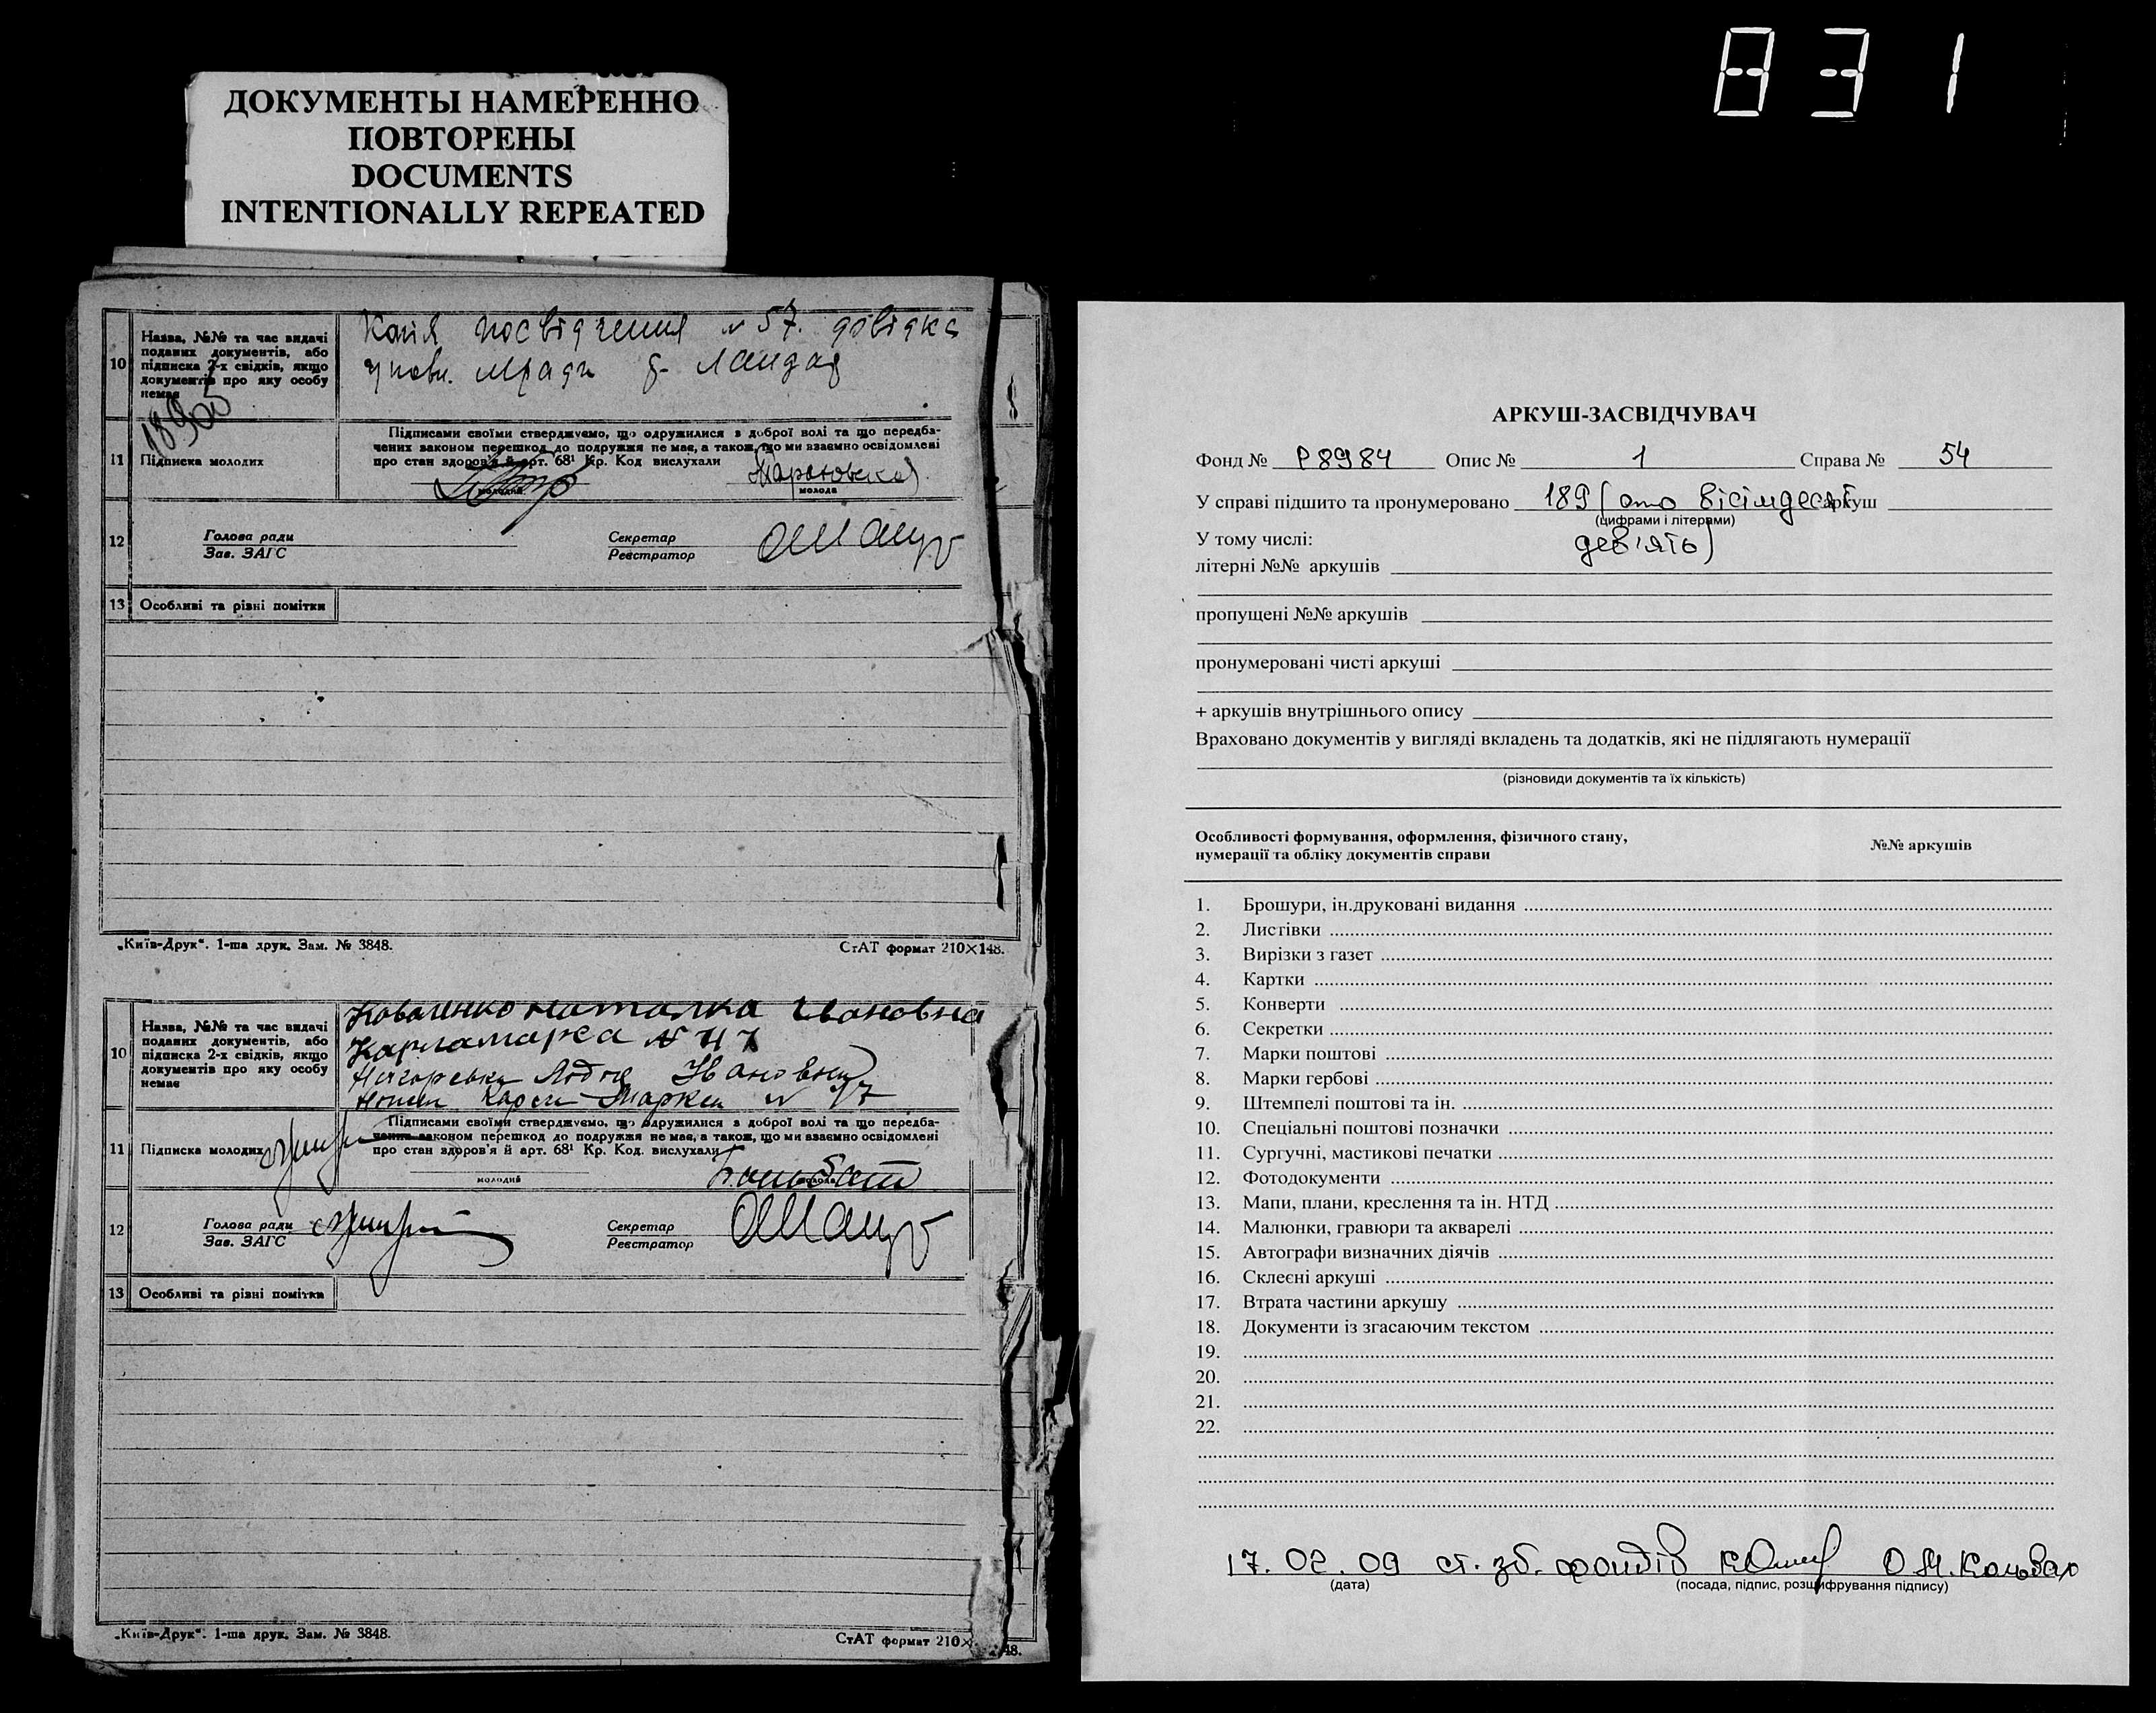 831
ДОКУМЕНТЫ НАМЕРЕННО
ПОВТОРЕНЫ
DOCUMENTS
INTENTIONALLY REPEATED
10
Назва, №№ та час видачі
поданих документів, або
підписка 2-х свідків, якщо
документів про яку особу
немає
Копія посвідчення № 57. довідка
18905
11
Підписка молодих
Підписами своїми стверджуємо, що одружилися з доброї волі та що передба-
чених законом перешкод до подружжя не має, а також, що ми взаємно освідомлені
про стан здоров'я й арт. 68¹ Кр. Код вислухали
молодий
молода
12
Голова ради
Зав. ЗАГС
Секретар
Реєстратор
13
Особливі та різні помітки
„Київ-Друк". 1-ша друк. Зам. № 3848.
СтАТ формат 210×148.
10
Назва, №№ та час видачі
поданих документів, або
підписка 2-х свідків, якщо
документів про яку особу
немає
Коваленко Наталка Івановна
Карламарса № 47
Івановна
Карла Маркса №
11
Підписка молодих
Підписами своїми стверджуємо, що одружилися з доброї волі та що передба-
чених законом перешкод до подружжя не має, а також, що ми взаємно освідомлені
про стан здоров'я й арт. 68¹ Кр. Код. вислухали
молодий
молода
12
Голова ради
Зав. ЗАГС
Секретар
Реєстратор
13
Особливі та різні помітки
„Київ-Друк". 1-ша друк. Зам. № 3848.
СтАТ формат 210×
48.
АРКУШ-ЗАСВІДЧУВАЧ
Фонд № Р8984 Опис № 1 Справа № 54
У справі підшито та пронумеровано 189 (сто вісімдесят аркуш
(цифрами і літерами)
У тому числі: дев'ять)
літерні №№ аркушів
пропущені №№ аркушів
пронумеровані чисті аркуші
+ аркушів внутрішнього опису
Враховано документів у вигляді вкладень та додатків, які не підлягають нумерації
(різновиди документів та їх кількість)
Особливості формування, оформлення, фізичного стану,
нумерації та обліку документів справи
№№ аркушів
1. Брошури, ін.друковані видання
2. Листівки
3. Вирізки з газет
4. Картки
5. Конверти
6. Секретки
7. Марки поштові
8. Марки гербові
9. Штемпелі поштові та ін.
10. Спеціальні поштові позначки
11. Сургучні, мастикові печатки
12. Фотодокументи
13. Мапи, плани, креслення та ін. НТД
14. Малюнки, гравюри та акварелі
15. Автографи визначних діячів
16. Склеєні аркуші
17. Втрата частини аркушу
18. Документи із згасаючим текстом
19.
20.
21.
22.
17.02.09 ст. зб. фондів О.М.
(дата)
(посада, підпис, розшифрування підпису)